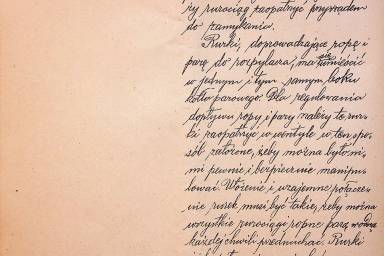 ry rurociąg zaopatrzyć przyrządem
do zamykania.
Rurki, doprowadzające ropę i
parę do rozpylacza, ma się umieścić
w jednym i tym samym boku
kotła parowego. Dla regulowania
dopływu ropy i pary należy te rur-
ki zaopatrzyć w wentyle w ten spo-
sób założone, żeby można było ni-
mi pewnie i bezpiecznie manipu-
lować. Ułożenie i wzajemne połącze-
nie rurek musi być takie, żeby można
wszystkie rurociągi ropne parą wodną
każdej chwili przedmuchać. Rurki